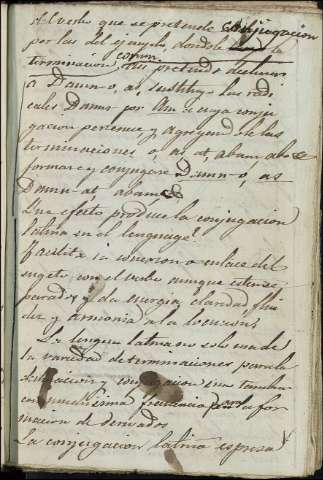 Al verbo que se pretende conjugacion
por las del ejemplo, dandole la
terminacion comun
a Damn-o, as, sustituyo las radi
cales Damn por Am a cuya conju
gacion pertenece, y agregandole las
terminaciones o, as, at, abam, abo &
formare y conjugare Damn-o, as
Damn-at, abam &
Que efecto produce la conjugacion
latina en el lenguage?
Facilita la conexion o enlace del
sugeto con el verbo aunque esten se
parados y da energia, claridad, flui
dez y armonia a la locucion.
La lengua latina no solo usa de
la variedad de terminaciones para la
declinacion y conjugacion sino tambien
con muchisima frecuencia para la for
macion de derivados
La conjugacion latina espresa